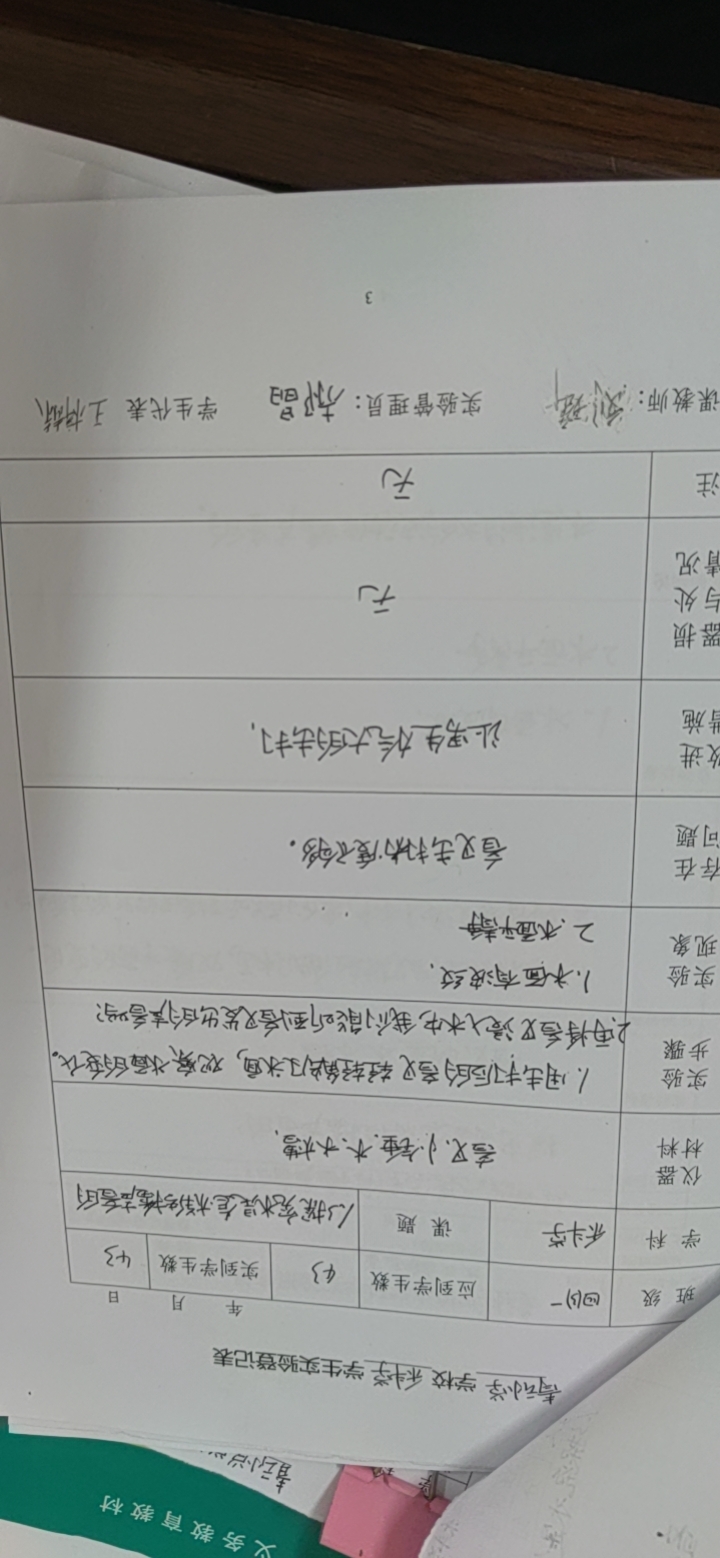 青云小学 学校 科学 学生实验登记表
年 月 日
班 级 四(1) 应到学生数 43 实到学生数 43
学 科 科学 课 题 1.3探究水是怎样传播声音的
仪器
材料
音叉.小锤.水.水槽.
实验
步骤
1.用击打后的音叉轻轻触及水面,观察水面的变化。
2.再将音叉浸入水中,我们能听到音叉发出的声音吗?
实验
现象
1.水面有波纹.
2.水面平静
存在
问题
音叉击打力度不够.
改进
措施
让男生力气大的击打.
器损
与处
情况
无
注
无
课教师: 实验管理员: 郝晶 学生代表 王
3
义务教育教材
青云小学